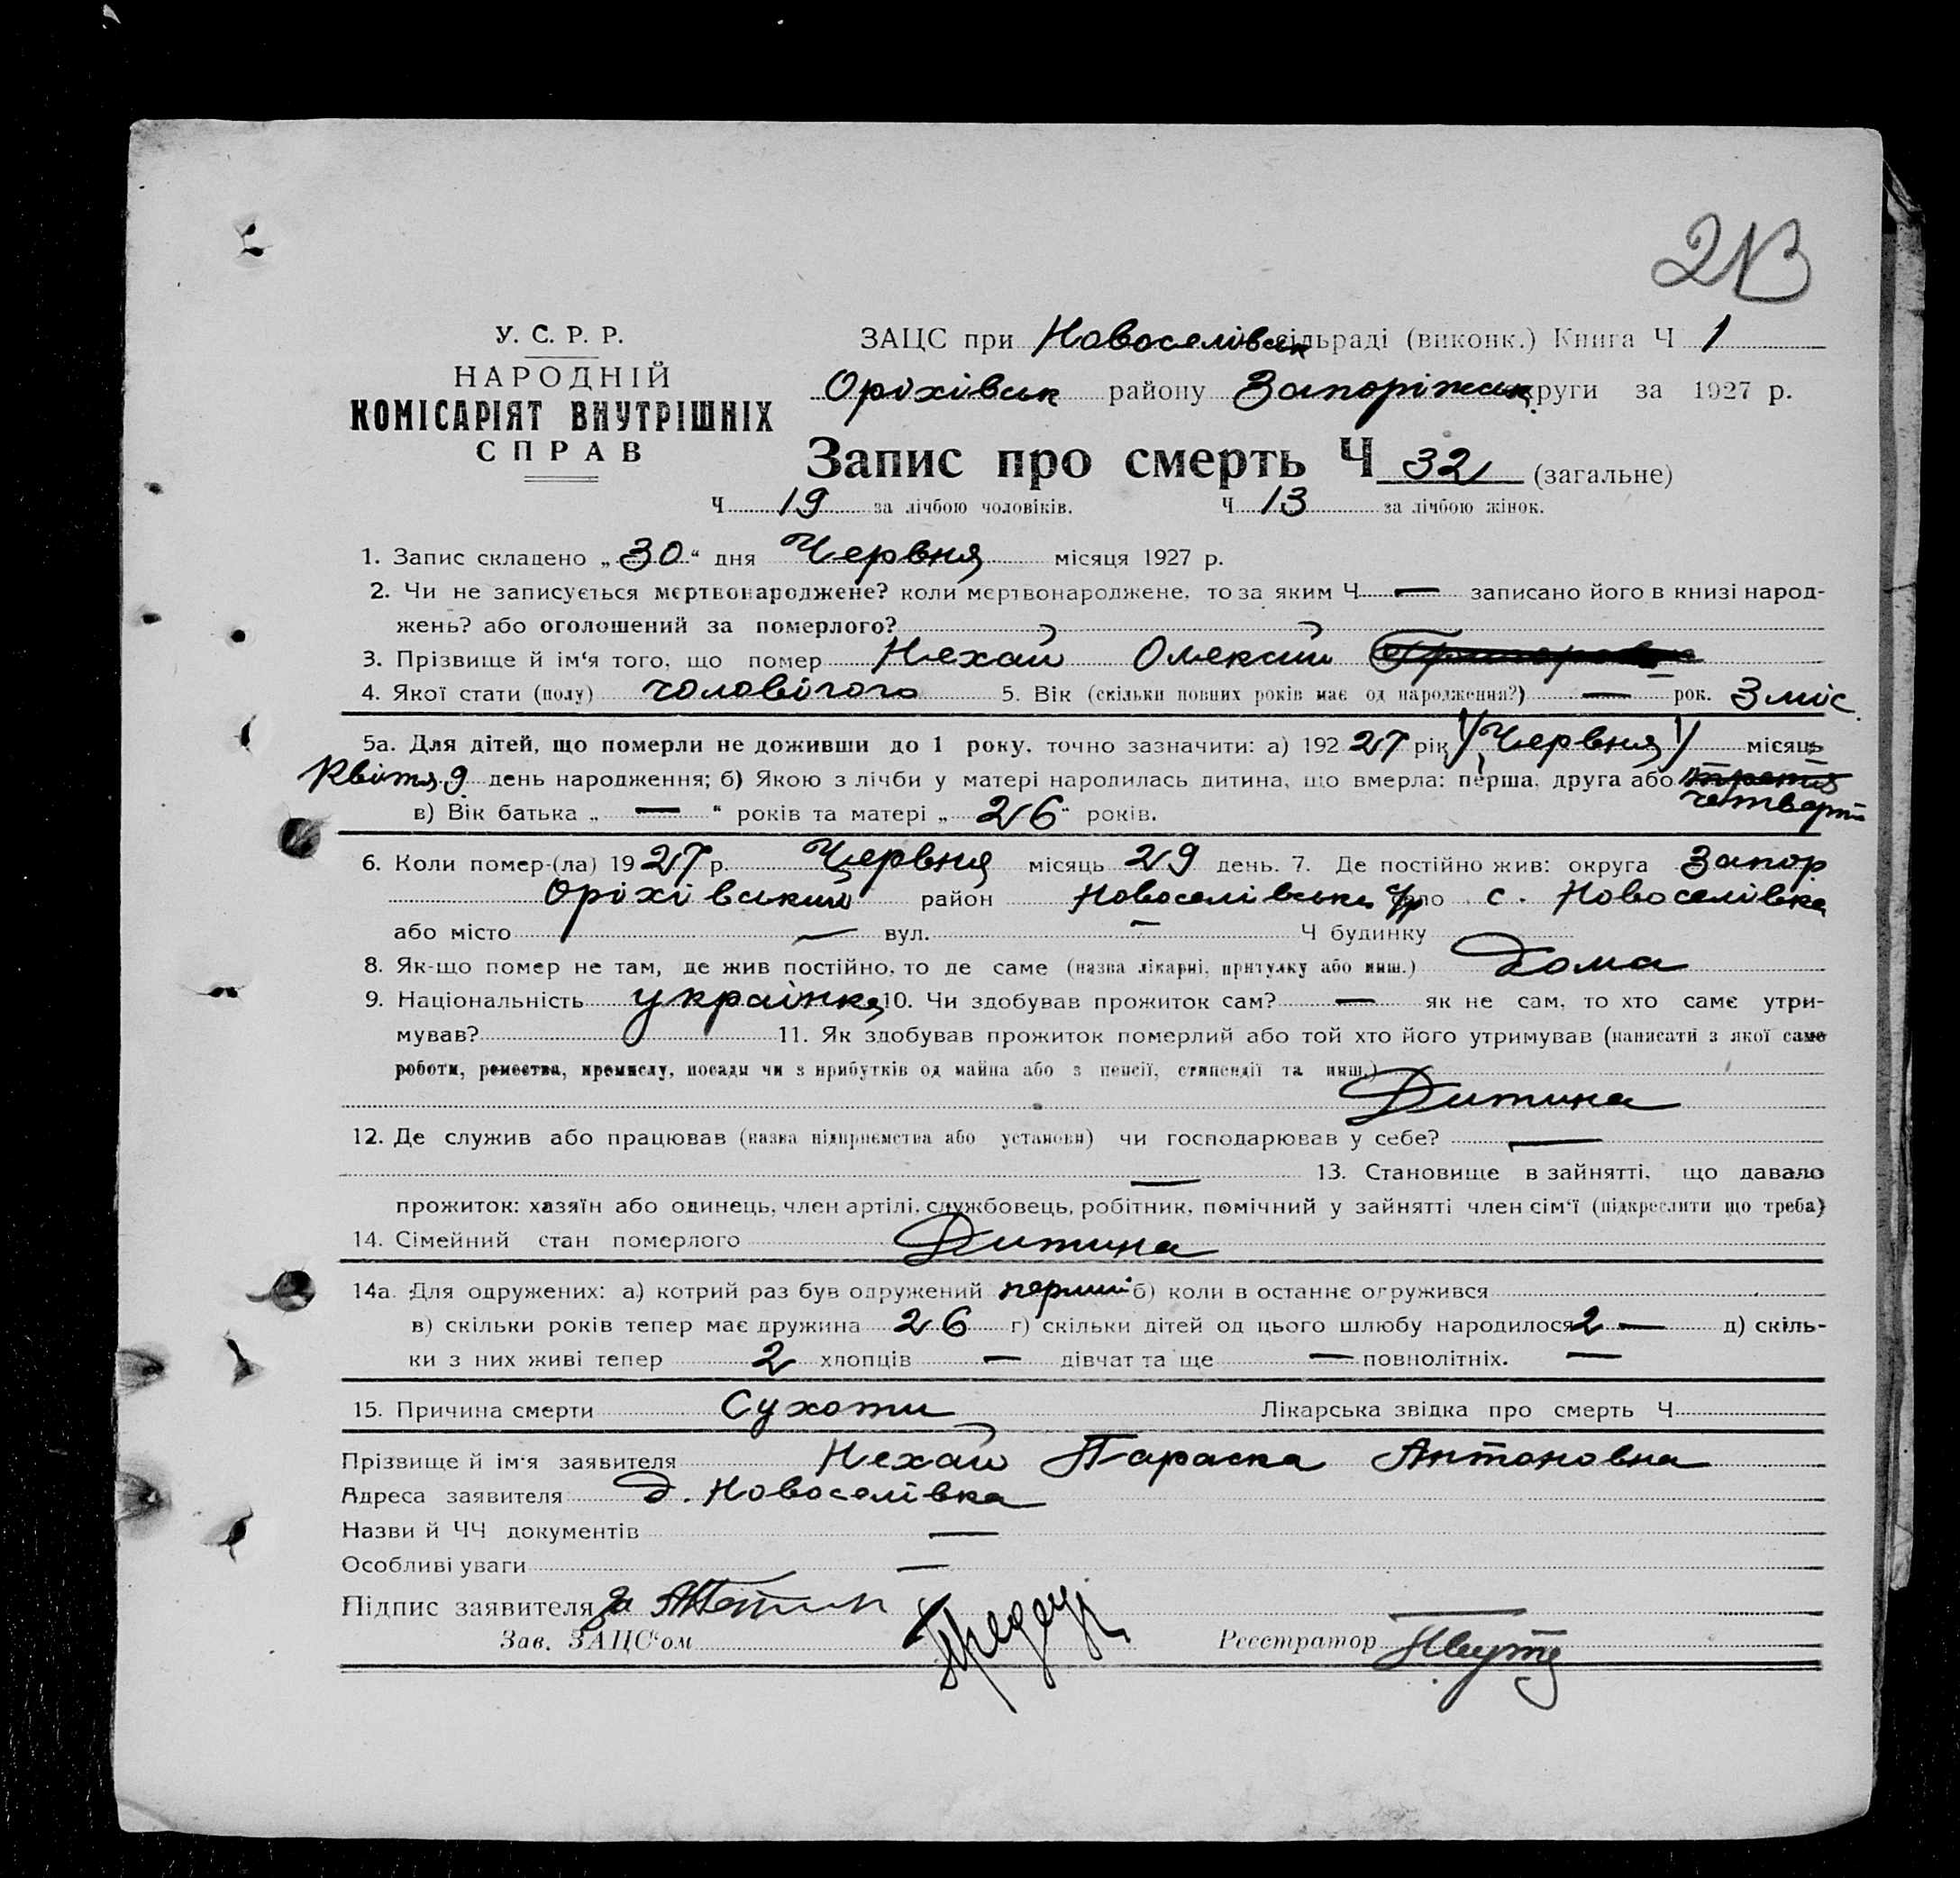 213
У. С. Р. Р.
НАРОДНІЙ
КОМІСАРІЯТ ВНУТРІШНІХ
СПРАВ
ЗАЦС при Новоселівськ сільраді (виконк.) Книга Ч 1
Оріхівськ району Запоріжськ округи за 1927 р.
Запис про смерть Ч 32 (загальне)
Ч 19 за лічбою чоловіків. Ч 13 за лічбою жінок.
1. Запис складено „30“ дня Червня місяця 1927 р.
2. Чи не записується мертвонароджене? коли мертвонароджене, то за яким Ч — записано його в книзі народ-
жень? або оголошений за померлого?
3. Прізвище й ім‘я того, що помер Нехай Олексій
4. Якої стати (полу) чоловічого 5. Вік (скільки повних років має од народження?) — рок. 3 міс.
5а. Для дітей, що померли не доживши до 1 року, точно зазначити: а) 1927 рік Червня місяць
Квітня 9 день народження; б) Якою з лічби у матері народилась дитина, що вмерла: перша, друга або третя
четверт
в) Вік батька „—“ років та матері „26“ років.
6. Коли помер-(ла) 1927 р. Червня місяць 29 день. 7. Де постійно жив: округа Запор
Оріхівський район Новоселівська с/р село с. Новоселівка
або місто — вул. — Ч будинку
8. Як-що помер не там, де жив постійно, то де саме (назва лікарні, притулку або инш.) Дома
9. Національність українка 10. Чи здобував прожиток сам? — як не сам, то хто саме утри-
мував? 11. Як здобував прожиток померлий або той хто його утримував (написати з якої саме
роботи, ремества, промислу, посади чи з прибутків од майна або з пенсії, стипендії та инш.)
Дитина
12. Де служив або працював (назва підприємства або установи) чи господарював у себе? —
— 13. Становище в зайнятті, що давало
прожиток: хазяїн або одинець, член артілі, службовець, робітник, помічний у зайнятті член сім‘ї (підкреслити що треба)
14. Сімейний стан померлого Дитина
14а. Для одружених: а) котрий раз був одружений перший б) коли в останнє огружився
в) скільки років тепер має дружина 26 г) скільки дітей од цього шлюбу народилося 2 — д) скіль-
ки з них живі тепер 2 хлопців — дівчат та ще — повнолітніх. —
15. Причина смерти Сухоти Лікарська звідка про смерть Ч
Прізвище й ім‘я заявителя Нехай Параска Антоновна
Адреса заявителя д. Новоселівка
Назви й ЧЧ документів —
Особливі уваги —
Підпис заявителя за
Зав. ЗАЦС‘ом Реєстратор